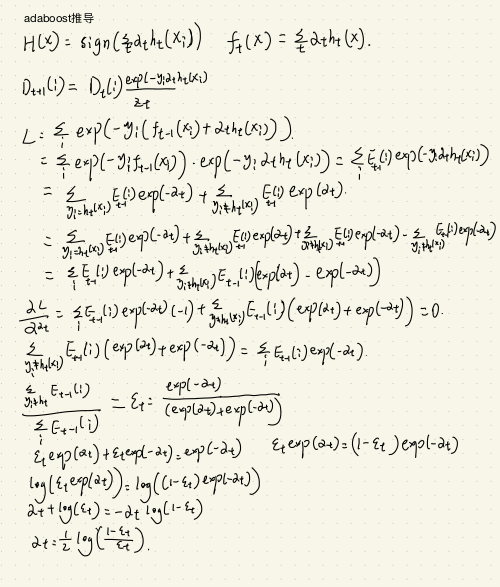 adaboost推导
H(x) = sign(Σ_t αt ht(xi))   ft(x) = Σ_t αt ht(x).
Dt+1(i) = Dt(i) exp(-yi αt ht(xi)) / zt
L = Σ_i exp(-yi(ft-1(xi) + αt ht(xi))).
= Σ_i exp(-yi ft-1(xi)) · exp(-yi αt ht(xi)) = Σ_i Et-1(i) exp(-yi αt ht(xi))
= Σ_{yi=ht(xi)} Et-1(i) exp(-αt) + Σ_{yi≠ht(xi)} Et-1(i) exp(αt).
= Σ_{yi=ht(xi)} Et-1(i) exp(-αt) + Σ_{yi≠ht(xi)} Et-1(i) exp(αt) + Σ_{yi≠ht(xi)} Et-1(i) exp(-αt) - Σ_{yi≠ht(xi)} Et-1(i) exp(αt)
= Σ_i Et-1(i) exp(-αt) + Σ_{yi≠ht(xi)} Et-1(i) (exp(αt) - exp(-αt))
∂L/∂αt = Σ_i Et-1(i) exp(-αt) (-1) + Σ_{yi≠ht(xi)} Et-1(i) (exp(αt) + exp(-αt)) = 0.
Σ_{yi≠ht(xi)} Et-1(i) (exp(αt) + exp(-αt)) = Σ_i Et-1(i) exp(-αt).
Σ_{yi≠ht} Et-1(i) / Σ_i Et-1(i) = εt = exp(-αt) / (exp(αt) + exp(-αt))
εt exp(αt) + εt exp(-αt) = exp(-αt)   εt exp(αt) = (1-εt) exp(-αt)
log(εt exp(αt)) = log((1-εt) exp(-αt))
αt + log(εt) = -αt log(1-εt)
αt = 1/2 log((1-εt)/εt).